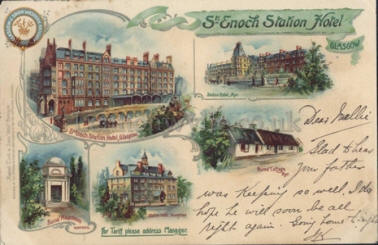 St Enoch Station Hotel
GLASGOW
St Enoch Station Hotel, Glasgow.
Station Hotel, Ayr.
Burns' Cottage
Ayr
Burns' Mausoleum
For Tariff please address Manager.
Dear Nellie
Glad to hear
your father
was keeping so well, I do
hope he will soon be all
right again. Going home